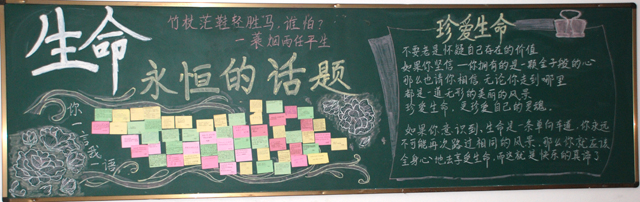 生命
竹杖芒鞋轻胜马，谁怕？
一蓑烟雨任平生
永恒的话题
你一言
我一语
珍爱生命
不要老是怀疑自己存在的价值
如果你坚信一你拥有的是一颗金子般的心
那么也请你相信无论你走到哪里
都是一道无形的美丽的风景
珍爱生命，是珍爱自己的灵魂。
如果你意识到，生命是一条单向车道，你永远
不可能再次路过相同的风景，那么你就应该
全身心地去享受生命，而这就是快乐的真谛了